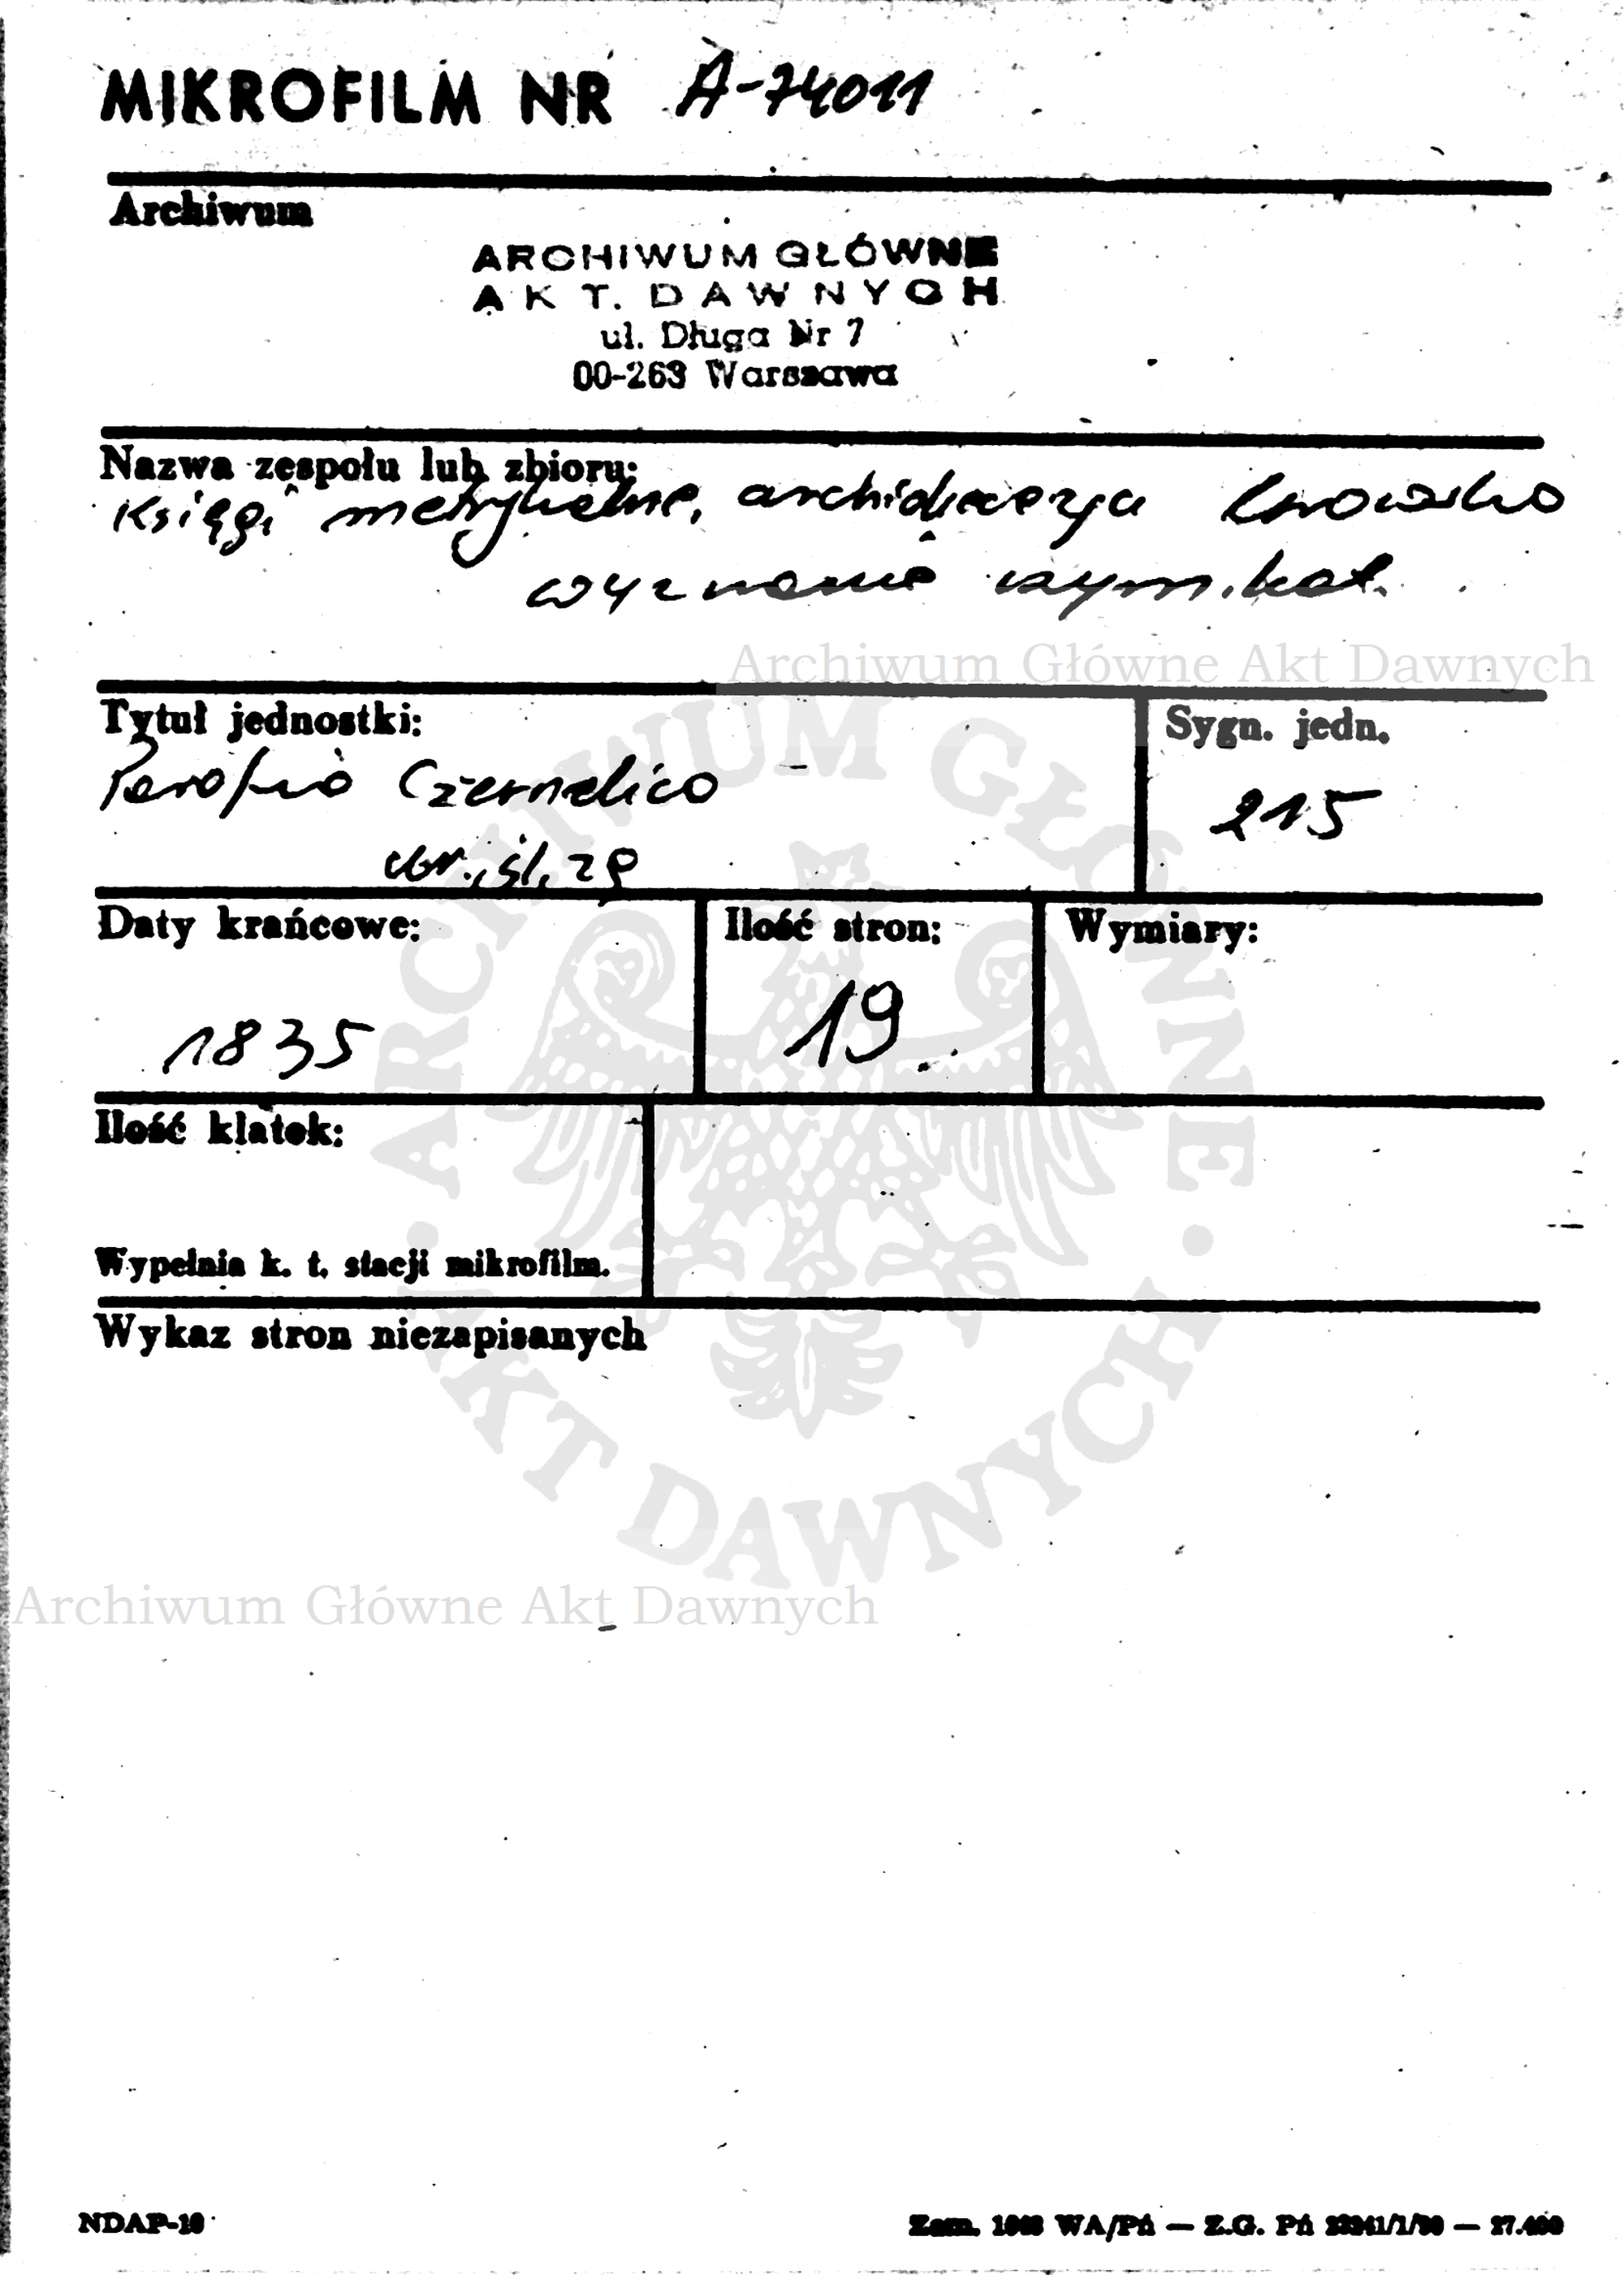 MIKROFILM NR A-74011
Archiwum
ARCHIWUM GŁÓWNE
AKT. DAWNYCH
ul. Długa Nr 7
00-263 Warszawa
Nazwa zespołu lub zbioru:
Księgi metrykalne, archidiecezja lwowska
wyznanie rzym.kat.
Archiwum Główne Akt Dawnych
Tytuł jednostki:
Sygn. jedn.
Parafia Czernelica
215
ur., śl, zg
Daty krańcowe:
Ilość stron:
Wymiary:
1835
19
Ilość klatek:
Wypełnia k. t. stacji mikrofilm.
Wykaz stron niezapisanych
ARCHIWUM GŁÓWNE
AKT DAWNYCH
Archiwum Główne Akt Dawnych
NDAP-10
Zam. WA/Pń — Z.G. Pń